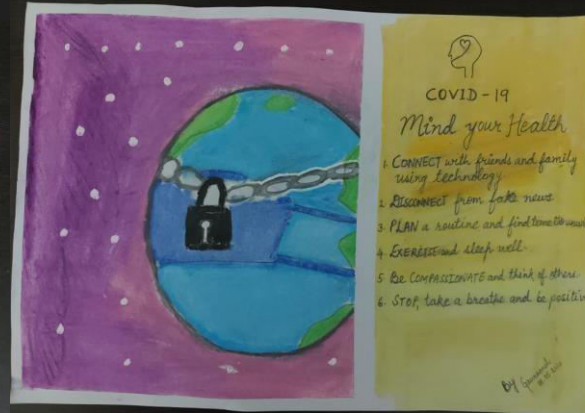 COVID-19
Mind your Health
1. CONNECT with friends and family
using technology
2 DISCONNECT from fake news
3 PLAN a routine and find time to
4 EXERCISE and sleep well
5 Be COMPASSIONATE and think of others
6. STOP, take a breathe and be positive
By